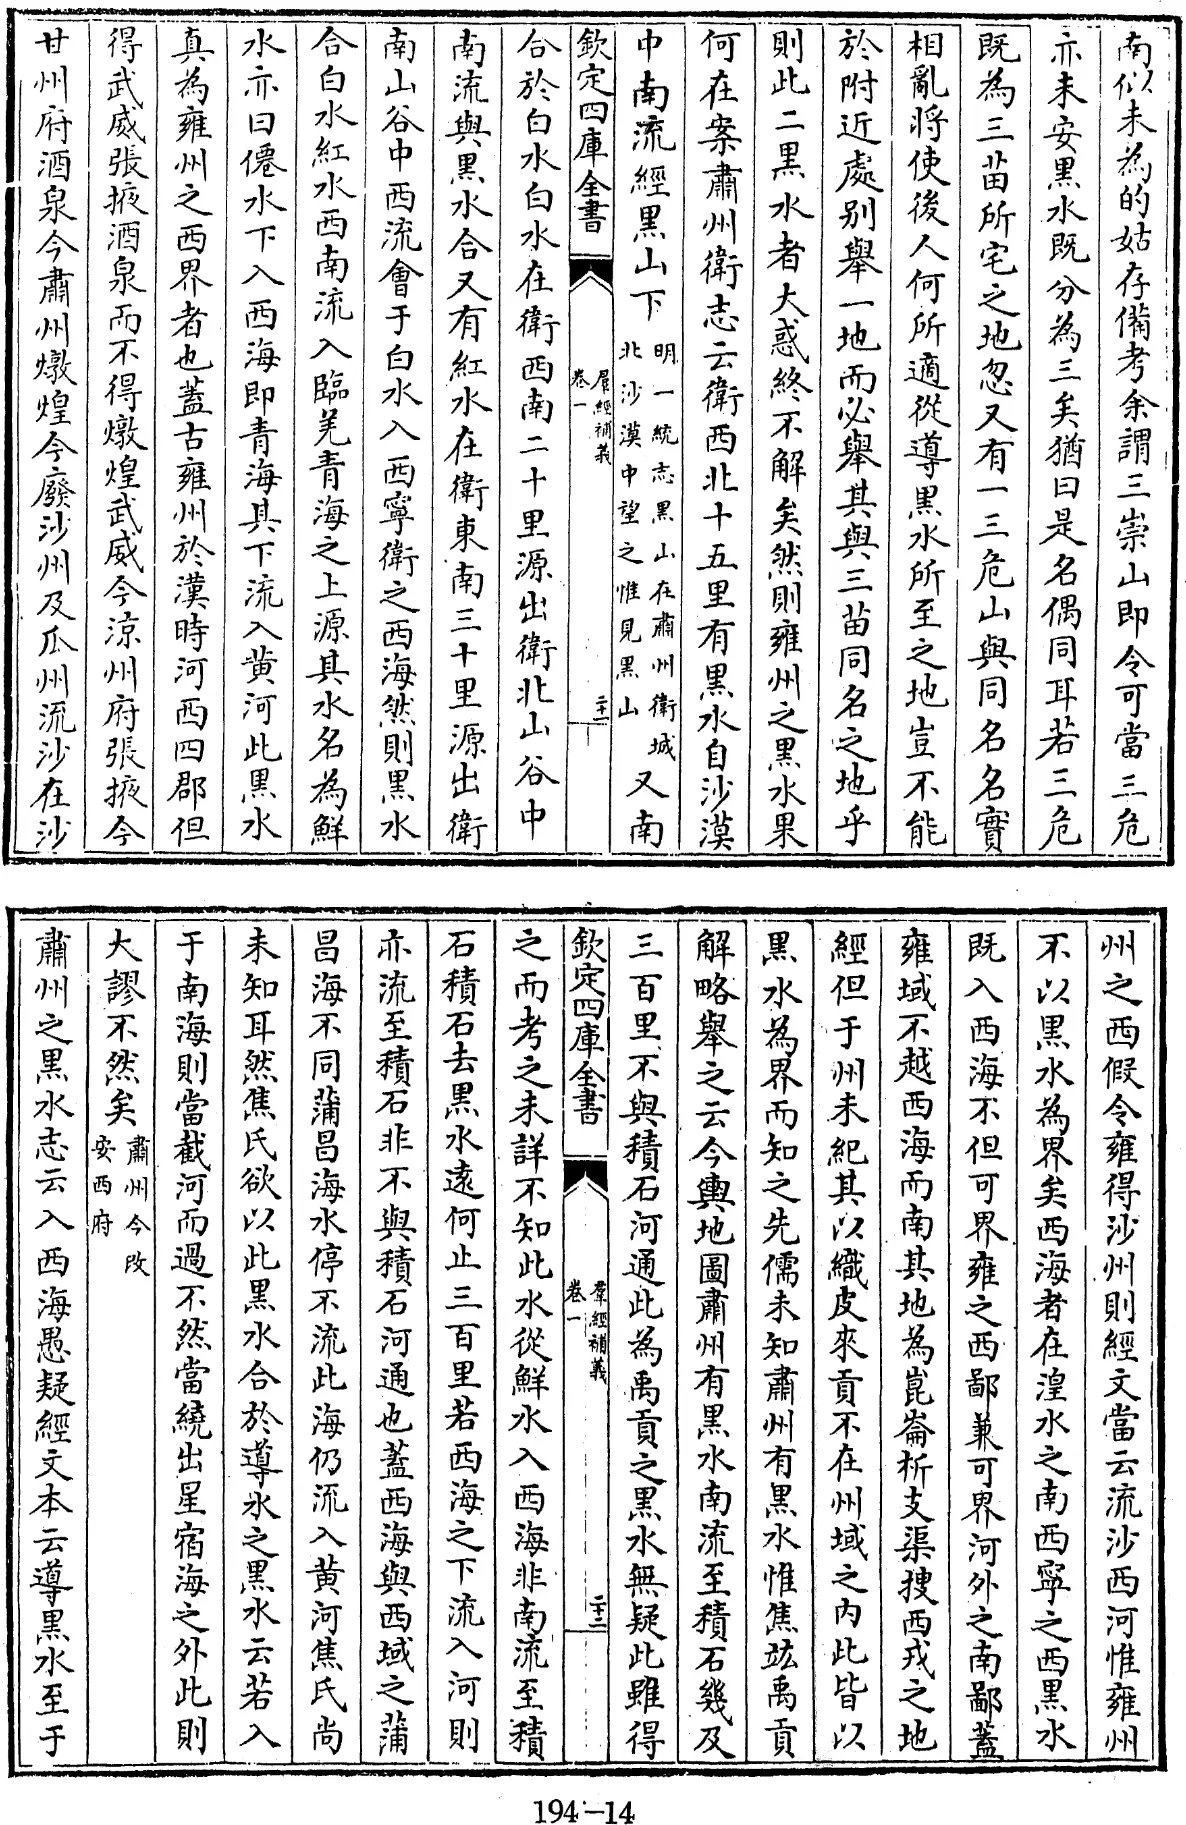 南似未為的姑存備考余謂三崇山即令可當三危
亦未安黒水既分為三矣猶曰是名偶同耳若三危
既為三苗所宅之地忽又有一三危山與同名名實
相亂將使後人何所適從導黒水所至之地豈不能
於附近處别舉一地而必舉其與三苗同名之地乎
則此二黒水者大惑終不解矣然則雍州之黒水果
何在案肅州衛志云衛西北十五里有黒水自沙漠
中南流經黒山下明一統志黒山在肅州衛城北沙漠中望之惟見黒山又南
欽定四庫全書
羣經補義
卷一
二十一
合於白水白水在衛西南二十里源出衛北山谷中
南流與黒水合又有紅水在衛東南三十里源出衛
南山谷中西流會于白水入西寧衛之西海然則黒水
合白水紅水西南流入臨羌青海之上源其水名為鮮
水亦曰僊水下入西海即青海其下流入黄河此黒水
真為雍州之西界者也蓋古雍州於漢時河西四郡但
得武威張掖酒泉而不得燉煌武威今涼州府張掖今
甘州府酒泉今肅州燉煌今廢沙州及瓜州流沙在沙
州之西假令雍得沙州則經文當云流沙西河惟雍州
不以黒水為界矣西海者在湟水之南西寧之西黒水
既入西海不但可界雍之西鄙兼可界河外之南鄙蓋
雍域不越西海而南其地為崑崙析支渠搜西戎之地
經但于州末紀其以織皮來貢不在州域之内此皆以
黒水為界而知之先儒未知肅州有黒水惟焦竑禹貢
解略舉之云今輿地圖肅州有黒水南流至積石幾及
三百里不與積石河通此為禹貢之黒水無疑此雖得
欽定四庫全書
羣經補義
卷一
二十二
之而考之未詳不知此水從鮮水入西海非南流至積
石積石去黒水遠何止三百里若西海之下流入河則
亦流至積石非不與積石河通也蓋西海與西域之蒲
昌海不同蒲昌海水停不流此海仍流入黄河焦氏尚
未知耳然焦氏欲以此黒水合於導水之黒水云若入
于南海則當截河而過不然當繞出星宿海之外此則
大謬不然矣肅州今改安西府
肅州之黒水志云入西海愚疑經文本云導黒水至于
194-14